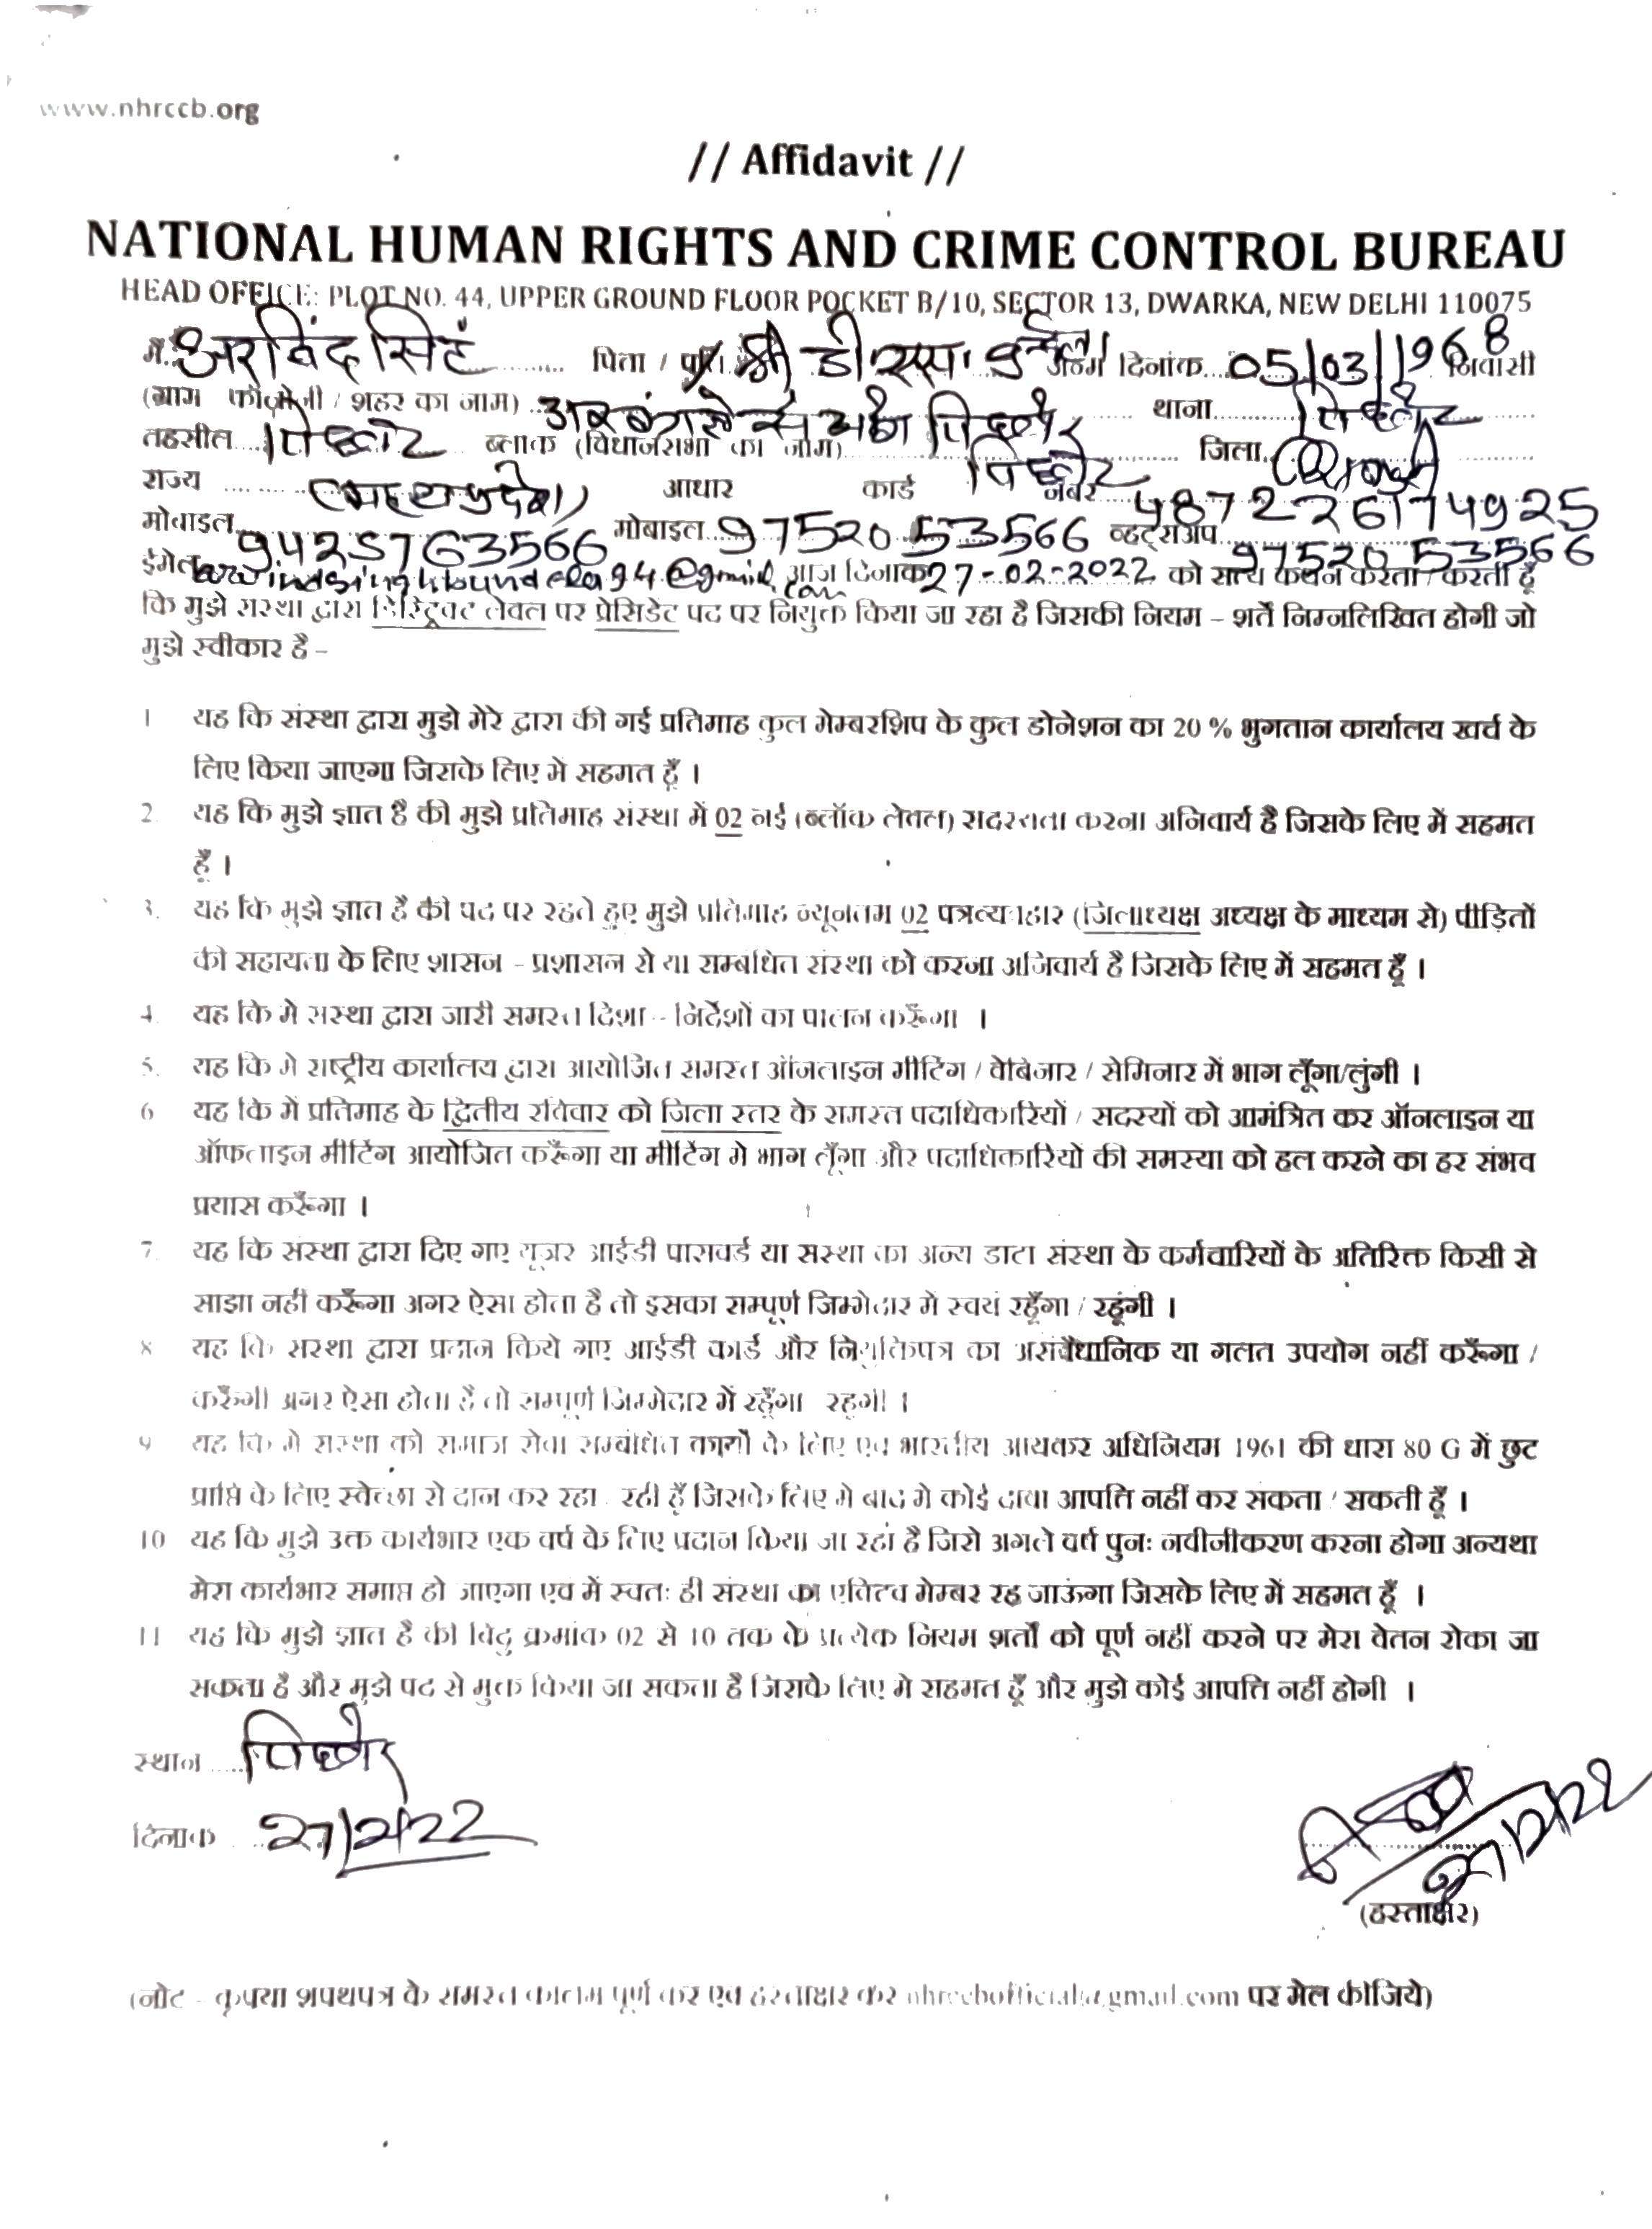 www.nhrccb.org
// Affidavit //
NATIONAL HUMAN RIGHTS AND CRIME CONTROL BUREAU
HEAD OFFICE: PLOT NO. 44, UPPER GROUND FLOOR POCKET B/10, SECTOR 13, DWARKA, NEW DELHI 110075
मैं अरविंद सिंह पिता / पति श्री डी एस बुन्देला जन्म दिनांक 05/03/1968 निवासी
(ग्राम / शहर का नाम) पिछोर थाना पिछोर
तहसील पिछोर ब्लाक (विधानसभा का नाम) पिछोर जिला
राज्य (मध्यप्रदेश) आधार कार्ड नंबर 487226174925
मोबाइल 9425763566 मोबाइल 9752053566 व्हट्सअप 9752053566
ईमेल आज दिनांक 27-02-2022 को सत्य कथन करता / करती हूँ
कि मुझे संस्था द्वारा डिस्ट्रिक्ट लेवल पर प्रेसिडेंट पद पर नियुक्त किया जा रहा है जिसकी नियम – शर्तें निम्नलिखित होगी जो
मुझे स्वीकार है –
1 यह कि संस्था द्वारा मुझे मेरे द्वारा की गई प्रतिमाह कुल मेम्बरशिप के कुल डोनेशन का 20 % भुगतान कार्यालय खर्च के
लिए किया जाएगा जिसके लिए मे सहमत हूँ ।
2. यह कि मुझे ज्ञात है की मुझे प्रतिमाह संस्था में 02 नई (ब्लॉक लेवल) सदस्यता करना अनिवार्य है जिसके लिए में सहमत
हूँ ।
3. यह कि मुझे ज्ञात है की पद पर रहते हुए मुझे प्रतिमाह न्यूनतम 02 पत्रव्यवहार (जिलाध्यक्ष अध्यक्ष के माध्यम से) पीड़ितों
की सहायता के लिए शासन - प्रशासन से या सम्बंधित संस्था को करना अनिवार्य है जिसके लिए में सहमत हूँ ।
4. यह कि मे संस्था द्वारा जारी समस्त दिशा - निर्देशों का पालन करूँगा ।
5. यह कि मे राष्ट्रीय कार्यालय द्वारा आयोजित समस्त ऑनलाइन मीटिंग / वेबिनार / सेमिनार में भाग लूँगा/लुंगी ।
6 यह कि में प्रतिमाह के द्वितीय रविवार को जिला स्तर के समस्त पदाधिकारियों / सदस्यों को आमंत्रित कर ऑनलाइन या
ऑफलाइन मीटिंग आयोजित करूँगा या मीटिंग मे भाग लूँगा और पदाधिकारियों की समस्या को हल करने का हर संभव
प्रयास करूँगा ।
7. यह कि संस्था द्वारा दिए गए यूजर आईडी पासवर्ड या संस्था का अन्य डाटा संस्था के कर्मचारियों के अतिरिक्त किसी से
साझा नही करूँगा अगर ऐसा होता है तो इसका सम्पूर्ण जिम्मेदार मे स्वयं रहूँगा / रहूंगी ।
8 यह कि संस्था द्वारा प्रदान किये गए आईडी कार्ड और नियुक्तिपत्र का असंवैधानिक या गलत उपयोग नहीं करूँगा /
करूँगी अगर ऐसा होता है तो सम्पूर्ण जिम्मेदार में रहूँगा रहूगी ।
9 यह कि मे संस्था को समाज सेवा सम्बंधित कार्यों के लिए एवं भारतीय आयकर अधिनियम 1961 की धारा 80 G में छुट
प्राप्ति के लिए स्वेच्छा से दान कर रहा रही हूँ जिसके लिए मे बाद मे कोई दावा आपति नहीं कर सकता / सकती हूँ ।
10 यह कि मुझे उक्त कार्यभार एक वर्ष के लिए प्रदान किया जा रहा है जिसे अगले वर्ष पुनः नवीनीकरण करना होगा अन्यथा
मेरा कार्यभार समाप्त हो जाएगा एवं में स्वतः ही संस्था का एक्टिव मेम्बर रह जाऊंगा जिसके लिए में सहमत हूँ ।
11 यह कि मुझे ज्ञात है की बिंदु क्रमांक 02 से 10 तक के प्रत्येक नियम शर्तों को पूर्ण नहीं करने पर मेरा वेतन रोका जा
सकता है और मुझे पद से मुक्त किया जा सकता है जिसके लिए मे सहमत हूँ और मुझे कोई आपत्ति नहीं होगी ।
स्थान पिछोर
दिनाक 27/2/22
27/2/22
(हस्ताक्षर)
(नोट - कृपया शपथपत्र के समस्त कालम पूर्ण कर एवं हस्ताक्षर कर nhrccbofficial@gmail.com पर मेल कीजिये)